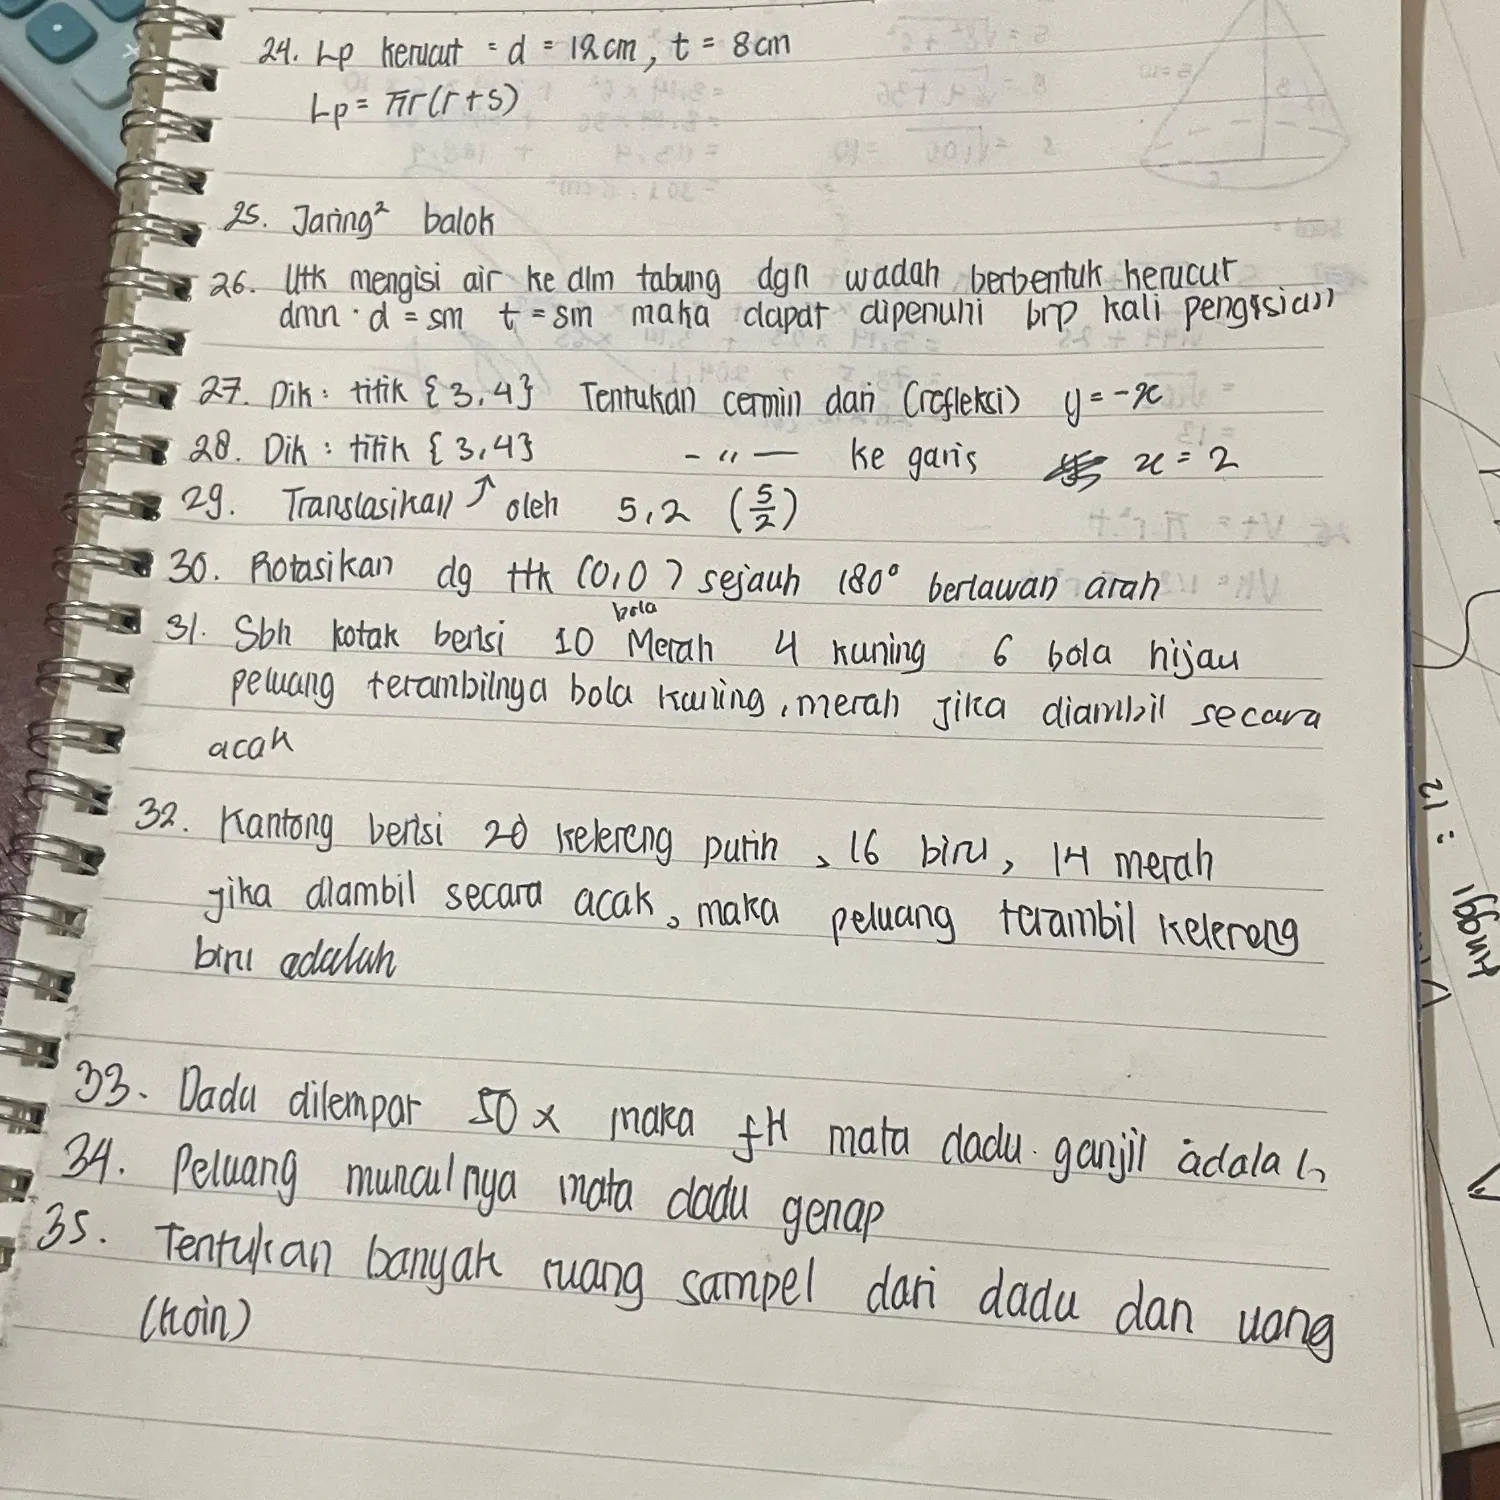 24. Lp kerucut = d = 12 cm, t = 8 cm
Lp = πr(r+s)
25. Jaring² balok
26. Utk mengisi air ke dlm tabung dgn wadah berbentuk kerucut
dmn · d = sm t = sm maka dapat dipenuhi brp kali pengisian
27. Dik : titik {3,4} Tentukan cermin dari (refleksi) y = -x
28. Dik : titik {3,4} - " — ke garis x = 2
29. Translasikan ↑ oleh 5,2 (5/2)
30. Rotasikan dg ttk (0,0) sejauh 180° berlawan arah
31. Sbh kotak berisi 10 bola Merah 4 kuning 6 bola hijau
peluang terambilnya bola kuning, merah jika diambil secara
acak
32. Kantong berisi 20 kelereng putih, 16 biru, 14 merah
jika diambil secara acak, maka peluang terambil kelereng
biru adalah
33. Dadu dilempar 50 x maka fH mata dadu ganjil adalah
34. Peluang munculnya mata dadu genap
35. Tentukan banyak ruang sampel dari dadu dan uang
(koin)